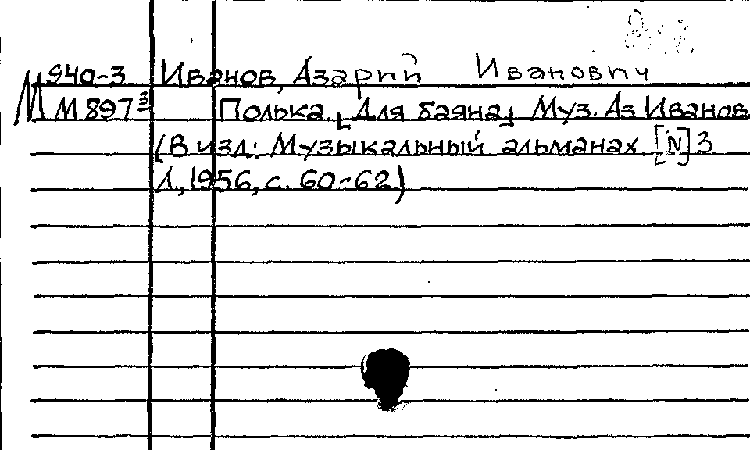 М 940-3 Иванов, Азарий Иванович
М 897³ Полька. [Для баяна] Муз. Аз Иванов
(В изд: Музыкальный альманах. [N] 3
Л, 1956, с. 60-62)